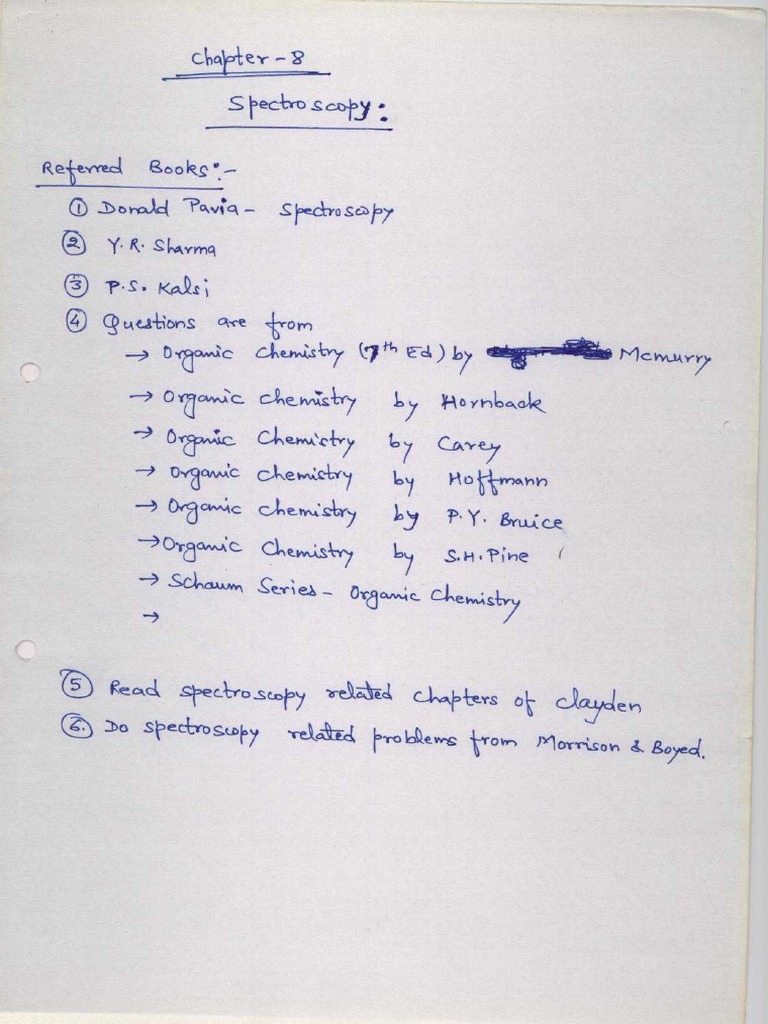 Chapter - 8
Spectroscopy:
Referred Books:-
① Donald Pavia - Spectroscopy
② Y.R. Sharma
③ P.S. Kalsi
④ Questions are from
→ Organic Chemistry (7th Ed) by Mcmurry
→ Organic Chemistry by Hornback
→ Organic Chemistry by Carey
→ Organic Chemistry by Hoffmann
→ Organic Chemistry by P.Y. Bruice
→ Organic Chemistry by S.H. Pine
→ Schaum Series - Organic Chemistry
→
⑤ Read spectroscopy related chapters of clayden
⑥ Do spectroscopy related problems from Morrison & Boyed.